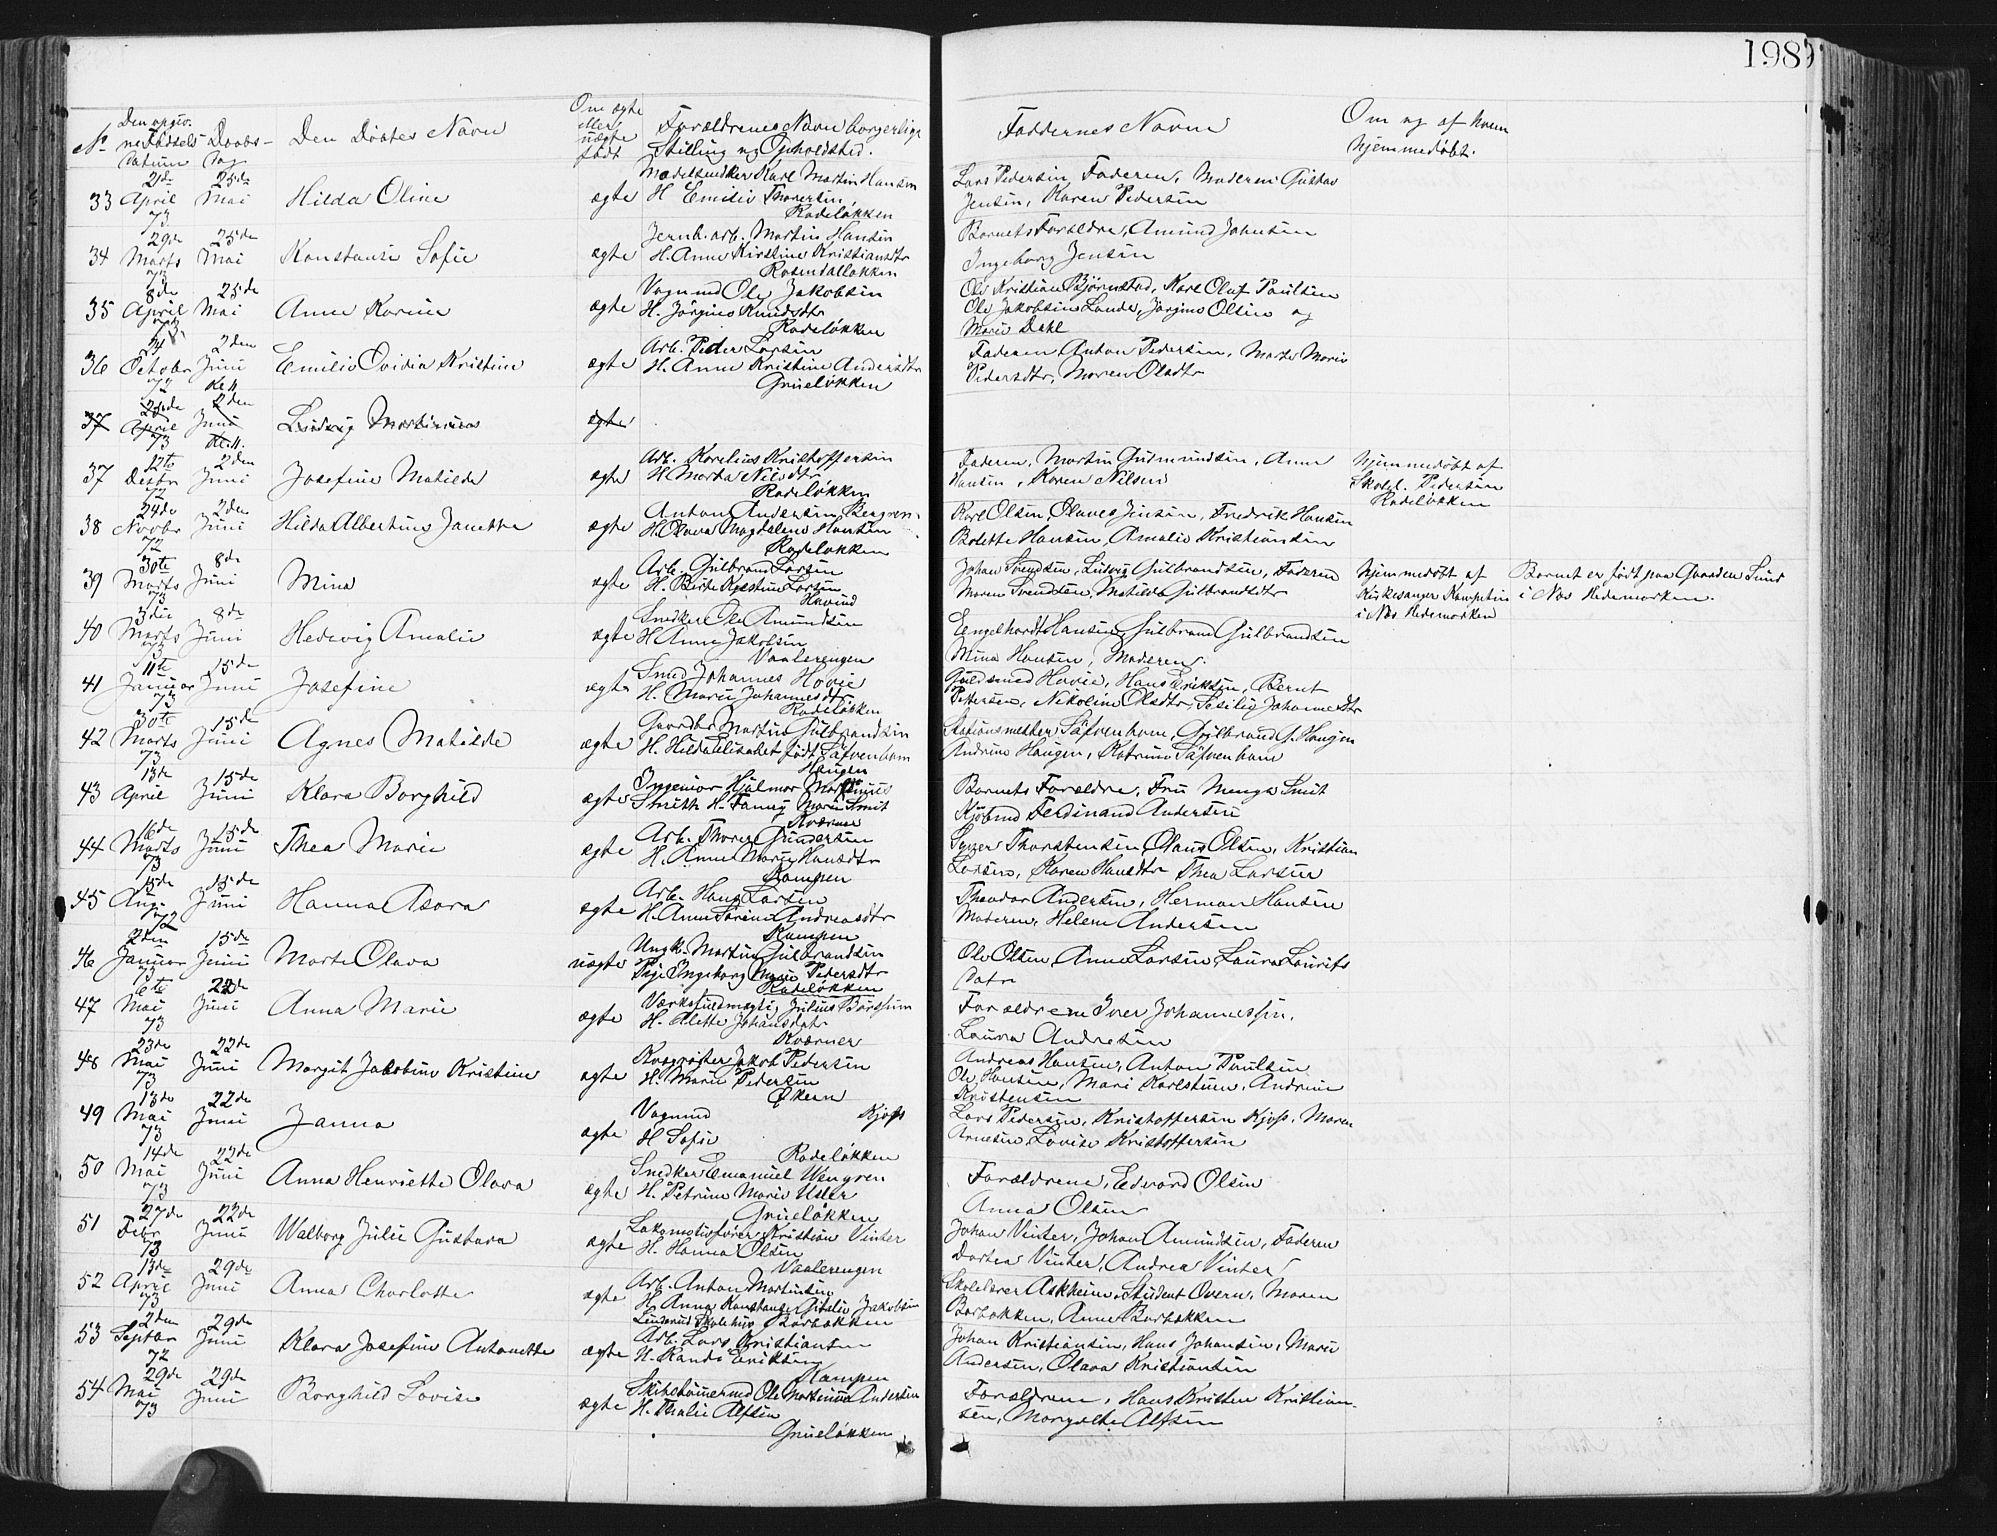 198
No Den opgiv. Fødsels Datum Daabs- Dag Den Døbtes Navn Om ægte eller uægte født Forældrenes Navn borgerlige Stilling og Opholdsted. Faddernes Navne Om og af hvem hjemmedøbt.
33 21de April 73 25de Mai Hilda Oline ægte Karl Martin Hansen
H Emilie Rodeløkken
Lars Pedersen, Faderen, Moderen Gustav
Jensen, Karen Pedersen
34 29de Marts 73 25de Mai Konstanse Sofie ægte Jernb. arb. Martin Hansen
H. Anne Kirstine Kristiansdtr
Rosendalløkken
Barnets Forældre, Amund Johnsen
Ingeborg Jensen
35 8de April 73 25de Mai Anna Karine ægte Vognmd Ole Jakobsen
H. Jørgine Knudsdtr
Rodeløkken
Ole Kristian Bjørnstad, Karl Olaf Paulsen
Ole Jakobsen Lande, Jørgine Olsen og
Marie Dahl
36 24 Octobr 72 2den Juni Kl. 11. Emilie Ovidia Kristine ægte Arb. Peder Larsen
H. Anne Kristine Andersdtr
Grueløkken
Faderen, Anton Pedersen, Marte Marie
Pedersdtr, Maren Olsdtr
37 April 73 2den Juni Kl. 11. Ludvig Martinius ægte
37 12te Decbr 72 2den Juni Josefine Matilde ægte Arb. Karelius Kristoffersen
H Marta Nilsdtr
Rodeløkken
Faderen, Martin Gudmundsen, Anne
Hansen, Karen Nilsen
hjemmedøbt af
Skolel. Pedersen
Rodeløkken
38 24de Novbr 72 2den Juni Hilda Albertine Janette ægte Anton Andersen Bergren
H. Olava Magdalene Hansen
Rodeløkken
Karl Olsen, Olaves Jensen, Fredrik Hansen
Bolette Hansen, Amalie Kristiansen
39 30te Marts 73 8de Juni Mina ægte Arb. Gulbrand Larsen
H. Birte Larsen
Johan Svendsen, Ludvig Gulbrandsen, Faderen
Maren Svendsen, Matilde Gulbrandsdtr
hjemmedøbt af
Kirkesanger
i Næs Hedemarken
Barnet er født paa Gaarden
i Næs Hedemarken.
40 3die Marts 73 8de Juni Hedevig Amalie ægte Snedker Ole Amundsen
H Anne Jakobsen
Vaalerengen
Engelhardt Hansen, Gulbrand Gulbrandsen
Mina Hansen, Moderen.
41 11te Januar 73 15de Juni Josefine ægte Smed Johannes Hovie
H. Marie Johannesdtr
Rodeløkken
Guldsmed Hovie, Hans Eriksen, Bernt
Pettersen, Nikoline Olsdtr, Johannesdtr
42 30te Marts 73 15de Juni Agnes Matilde ægte Gaardbr Martin Gulbrandsen
H. Hilda Elisabet født Säfvenbom
Haugen
Stationsmester Säfvenbom, Gulbrand G. Haugen
Andrine Haugen, Katrine Säfvenbom
43 13de April 15de Juni Klara Borghild ægte Ingeniør Hjalmar
Smith H. Fanny Marie Smit
Kværner
Barnets Forældre, Fru Smit
Kjøbmd Ferdinand Andersen
44 16de Marts 73 15de Juni Thea Marie ægte Arb. Thorer Gundersen
H. Anne Marie Hansdtr
Kampen
Syver Thorstensen, Olaus Olsen, Kristian
Larsen, Karen Hansdtr Thea Larsen
45 15de Aug. 72 15de Juni Hanna Asora ægte Arb. Hans Larsen
H. Anne Sørine Andreasdtr
Kampen
Theodor Andersen, Herman Hansen
Moderen, Helene Andersen
46 2den Januar 73 15de Juni Marte Olava uægte Ungk. Martin Gulbrandsen
Pige Ingeborg Marie Pedersdtr
Rodeløkken
Ole Olsen, Anne Larsen, Laura Laurits
Datr
47 6te Mai 73 22de Juni Anna Marie ægte Værksfuldmægti. Julius Borssum
H. Alette Johansdatr
Kværner
Forældrene Iver Johannessen,
Laura Andresen
48 23de Mai 73 22de Juni Margit Jakobine Kristine ægte Jakob Pedersen
H. Marie Pedersen
Økern
Andreas Hansen, Anton Paulsen
Ole Hansen, Mari Karlstuen, Andrine
Kristensen
49 13de Mai 73 22de Juni Janna ægte Vognmd Kjoss
H Sofie
Rodeløkken
Lars Pedersen, Kristoffersen Kjoss, Maren
Arnesen, Lovise Kristoffersen
50 14de Mai 73 22de Juni Anna Henriette Olava ægte Snedker Emanuel Wengren
H. Petrine Marie
Grueløkken
Forældrene, Edvard Olsen
Anna Olsen
51 27de Febr 73 22de Juni Walborg Julie Gustava ægte Lokomotivfører Kristian Vinter
H. Hanna Olsen
Vaalerengen
Johan Vinter, Johan Amundsen, Faderen
Dortea Vinter, Andrea Vinter
52 13de April 73 29de Juni Anna Charlotte ægte Arb. Anton Martinsen
H. Anna Konstanse Jakobsen
Skolehus Barbakken
Skolelærer Askheim, Student Overn, Maren
Barbakken, Anne Barbakken
53 2den Septbr 72 29de Juni Klara Josefine Antonette ægte Arb. Lars Kristiansen
H. Randi Eriksen
Kampen
Johan Kristiansen, Hans Johansen, Marie
Andersen, Olava Kristiansen
54 29de Mai 73 29de Juni Borghild Lovise ægte Skibstømmermd Ole Martinius Andersen
H. Thalie Alfsen
Grueløkken
Forældrene, Hans Kristen Kristian-
sen, Margrethe Alfsen